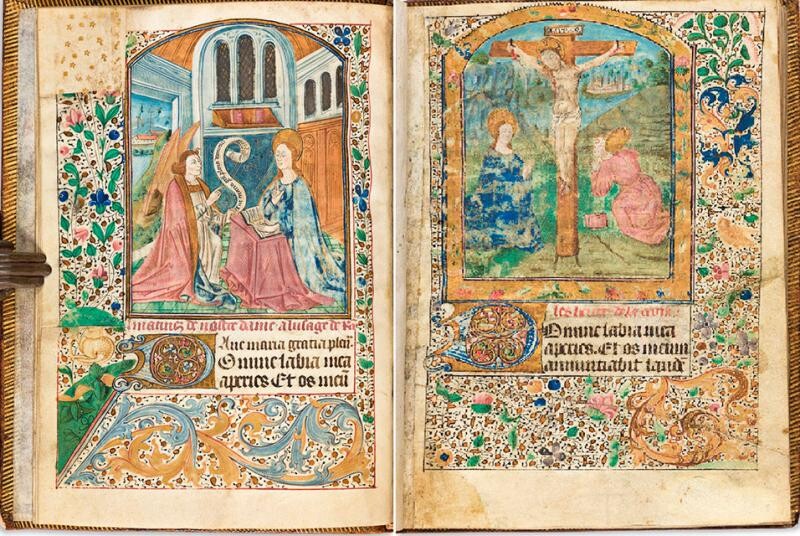 matines de nostre dame a lusage de Ro
Aue maria gratia plen
Domine labia mea
aperies. Et os meū
les heures de la croix.
Domine labia mea
aperies. Et os meum
annunciabit laudē